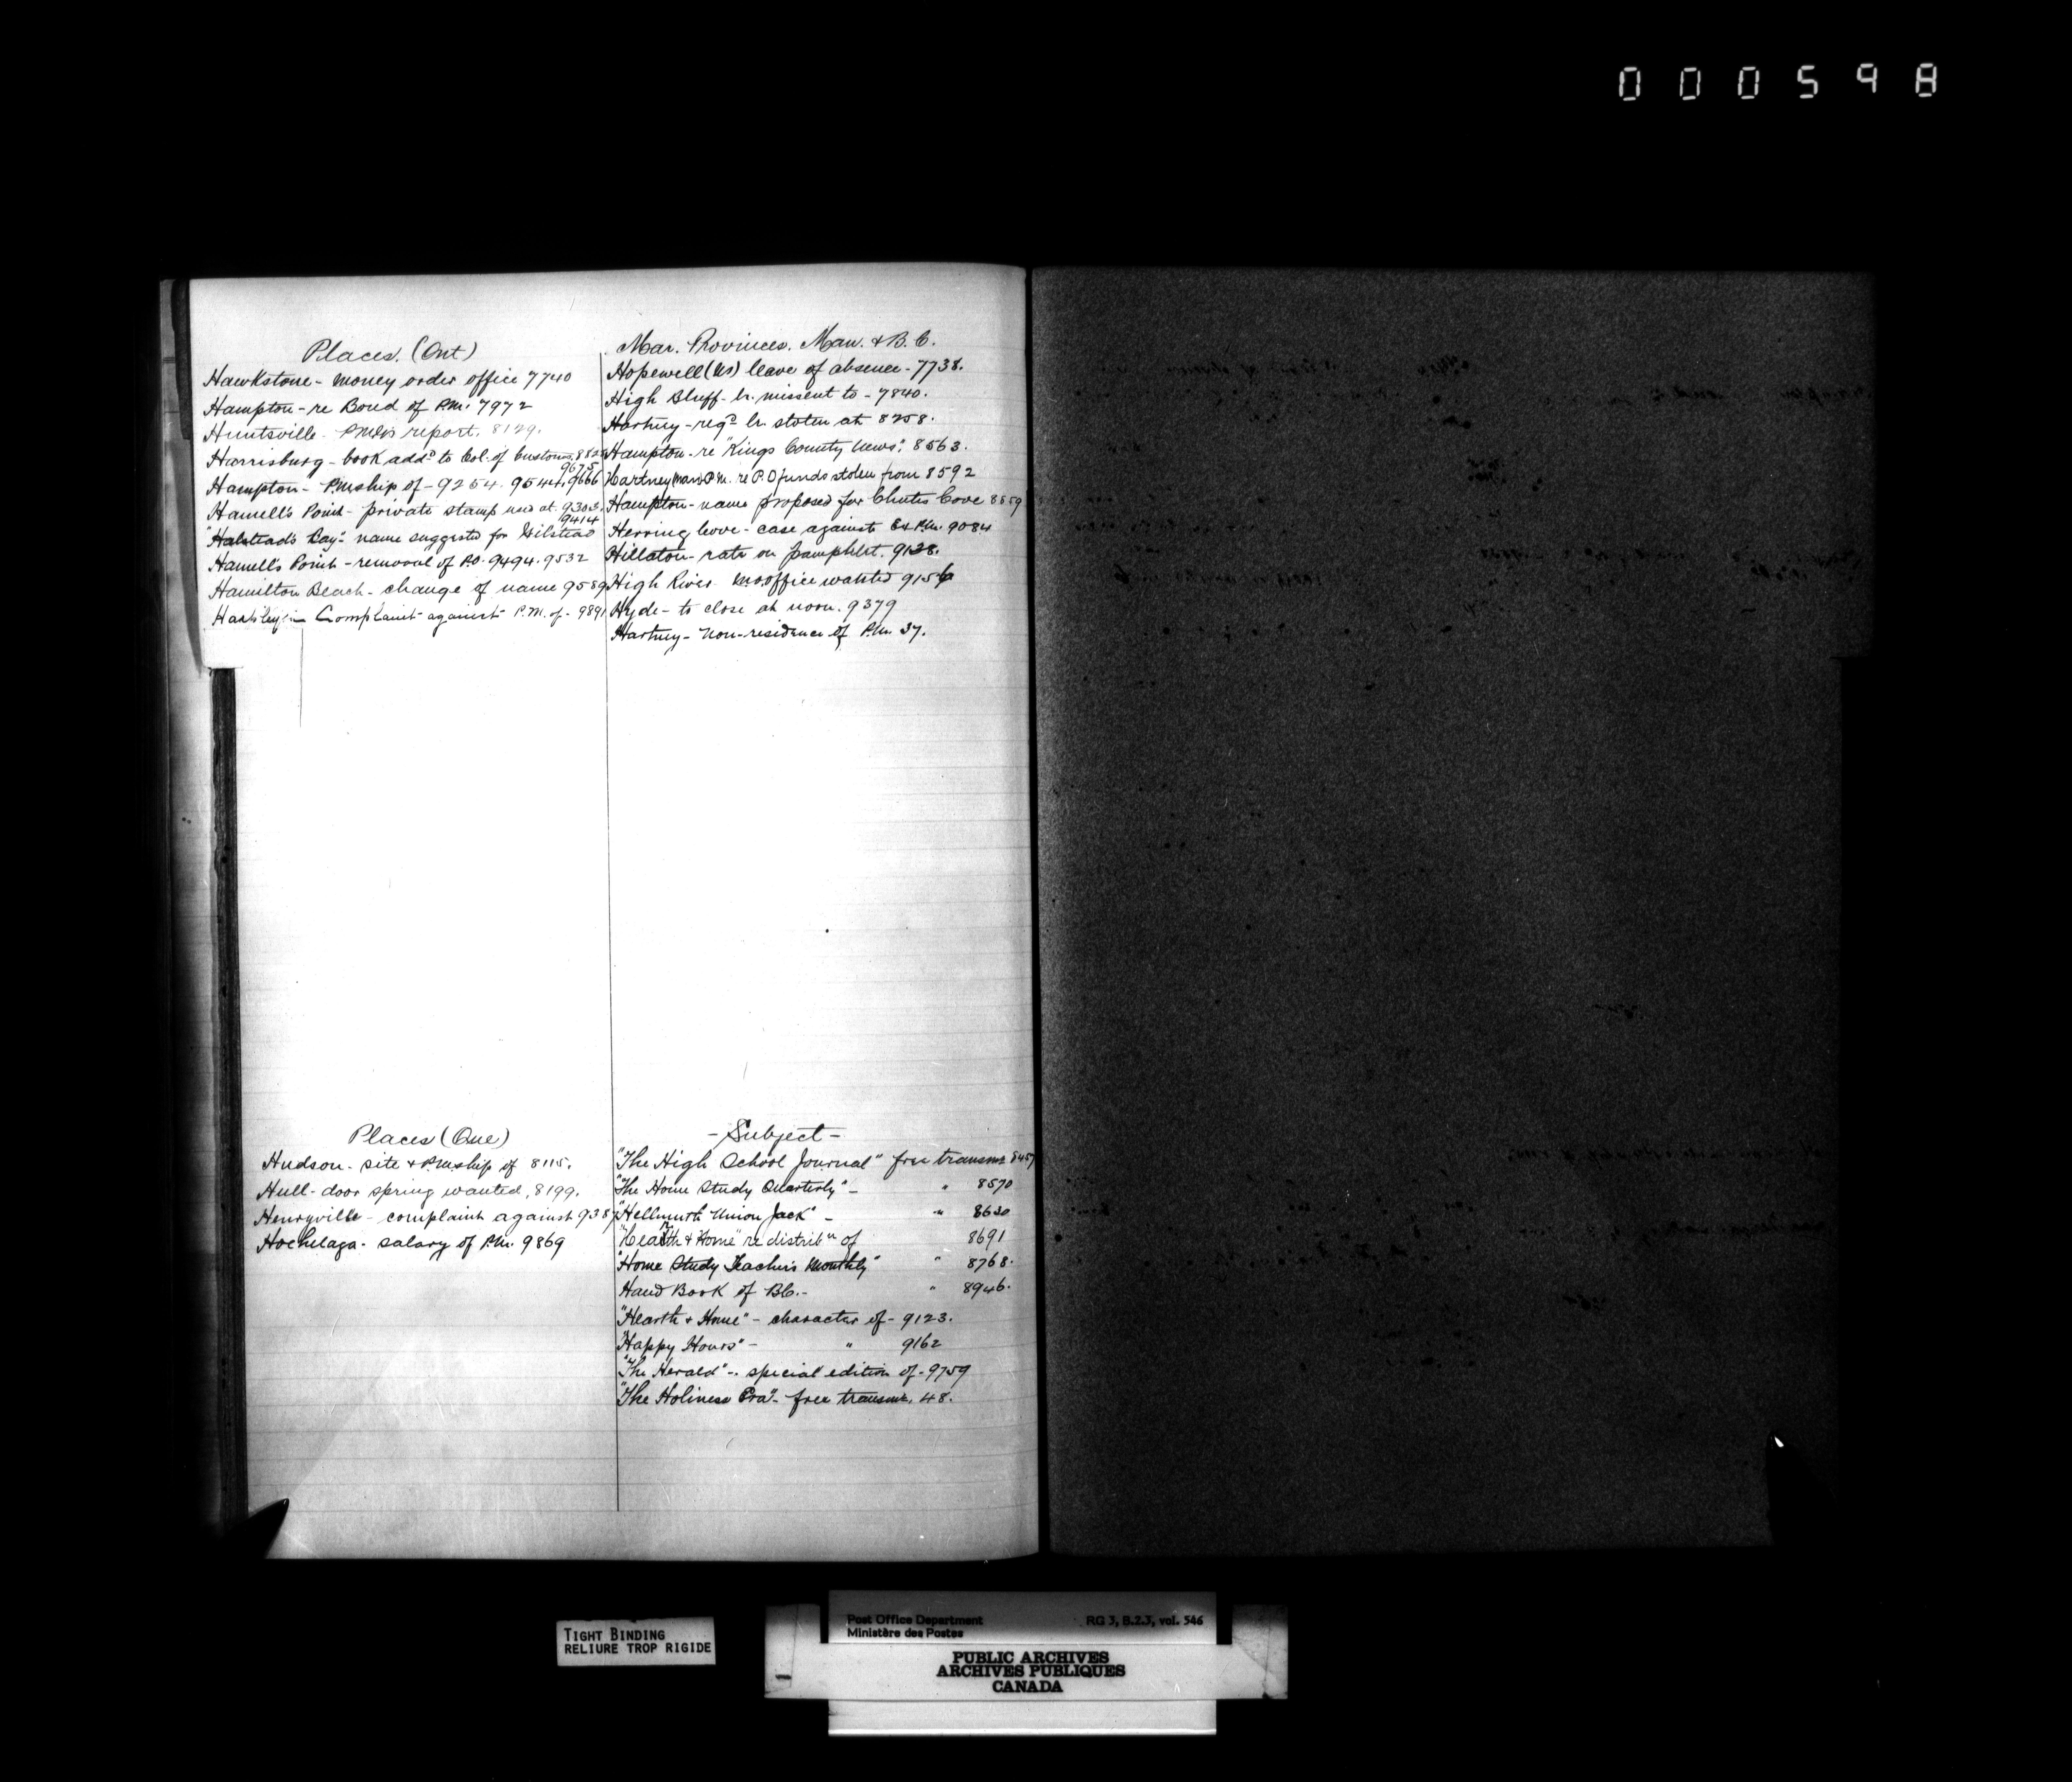 000598
Places. (Ont)
Hawkstone - Money order office 7740
Hampton - re Bond of P.M. 7972
Huntsville - report. 8129.
Harrisburg - book addd to Col. of Customs.
9675
Hampton - PMship of - 9254. 9544. 9666
Hamell's Point - private stamp used at. 9302.
9414
"Halstead's Bay" - name suggested for Gilstead
Hamell's Point - removal of P.O. 9494. 9532
Hamilton Beach - change of name 9589
Complaint against P.M. of - 9891
Mar. Provinces. Man. & B.C.
Hopewell (NS) leave of absence - 7738.
High Bluff - lr. missent to - 7840.
Hartney - regd lr. stolen at 8258.
Hampton - re "Kings County News". 8563.
Hartney Man P.M. re P.O funds stolen from 8592
Hampton - name proposed for Chutes Cove 8559
Herring Cove - case against Ex P.M. 9084
Hillaton - rate on pamphlet. 9128.
High River M.O. office wanted 9156
Hyde - to close at noon. 9379
Hartney - Non-residence of P.M. 37.
Places (Que)
Hudson - site & PMship of 8115.
Hull - door spring wanted, 8199.
Henryville - complaint against 9387
Hochelaga - salary of P.M. 9869
- Subject -
"The High School Journal" free transmn 8457
"The Home Study Quarterly" - " 8570
"Hellmuth Union Jack" - " 8630
"Hearth & Home" re distribn of 8691
"Home Study Teacher's Monthly" " 8768.
Hand Book of B.C. - " 8946.
"Hearth & Home" - character of - 9123.
"Happy Hours" - " 9162
"The Herald" - special edition of - 9759
"The Holiness Era" - free transmn. 48.
TIGHT BINDING
RELIURE TROP RIGIDE
Post Office Department RG 3, B.2.3, vol. 546
Ministère des Postes
PUBLIC ARCHIVES
ARCHIVES PUBLIQUES
CANADA